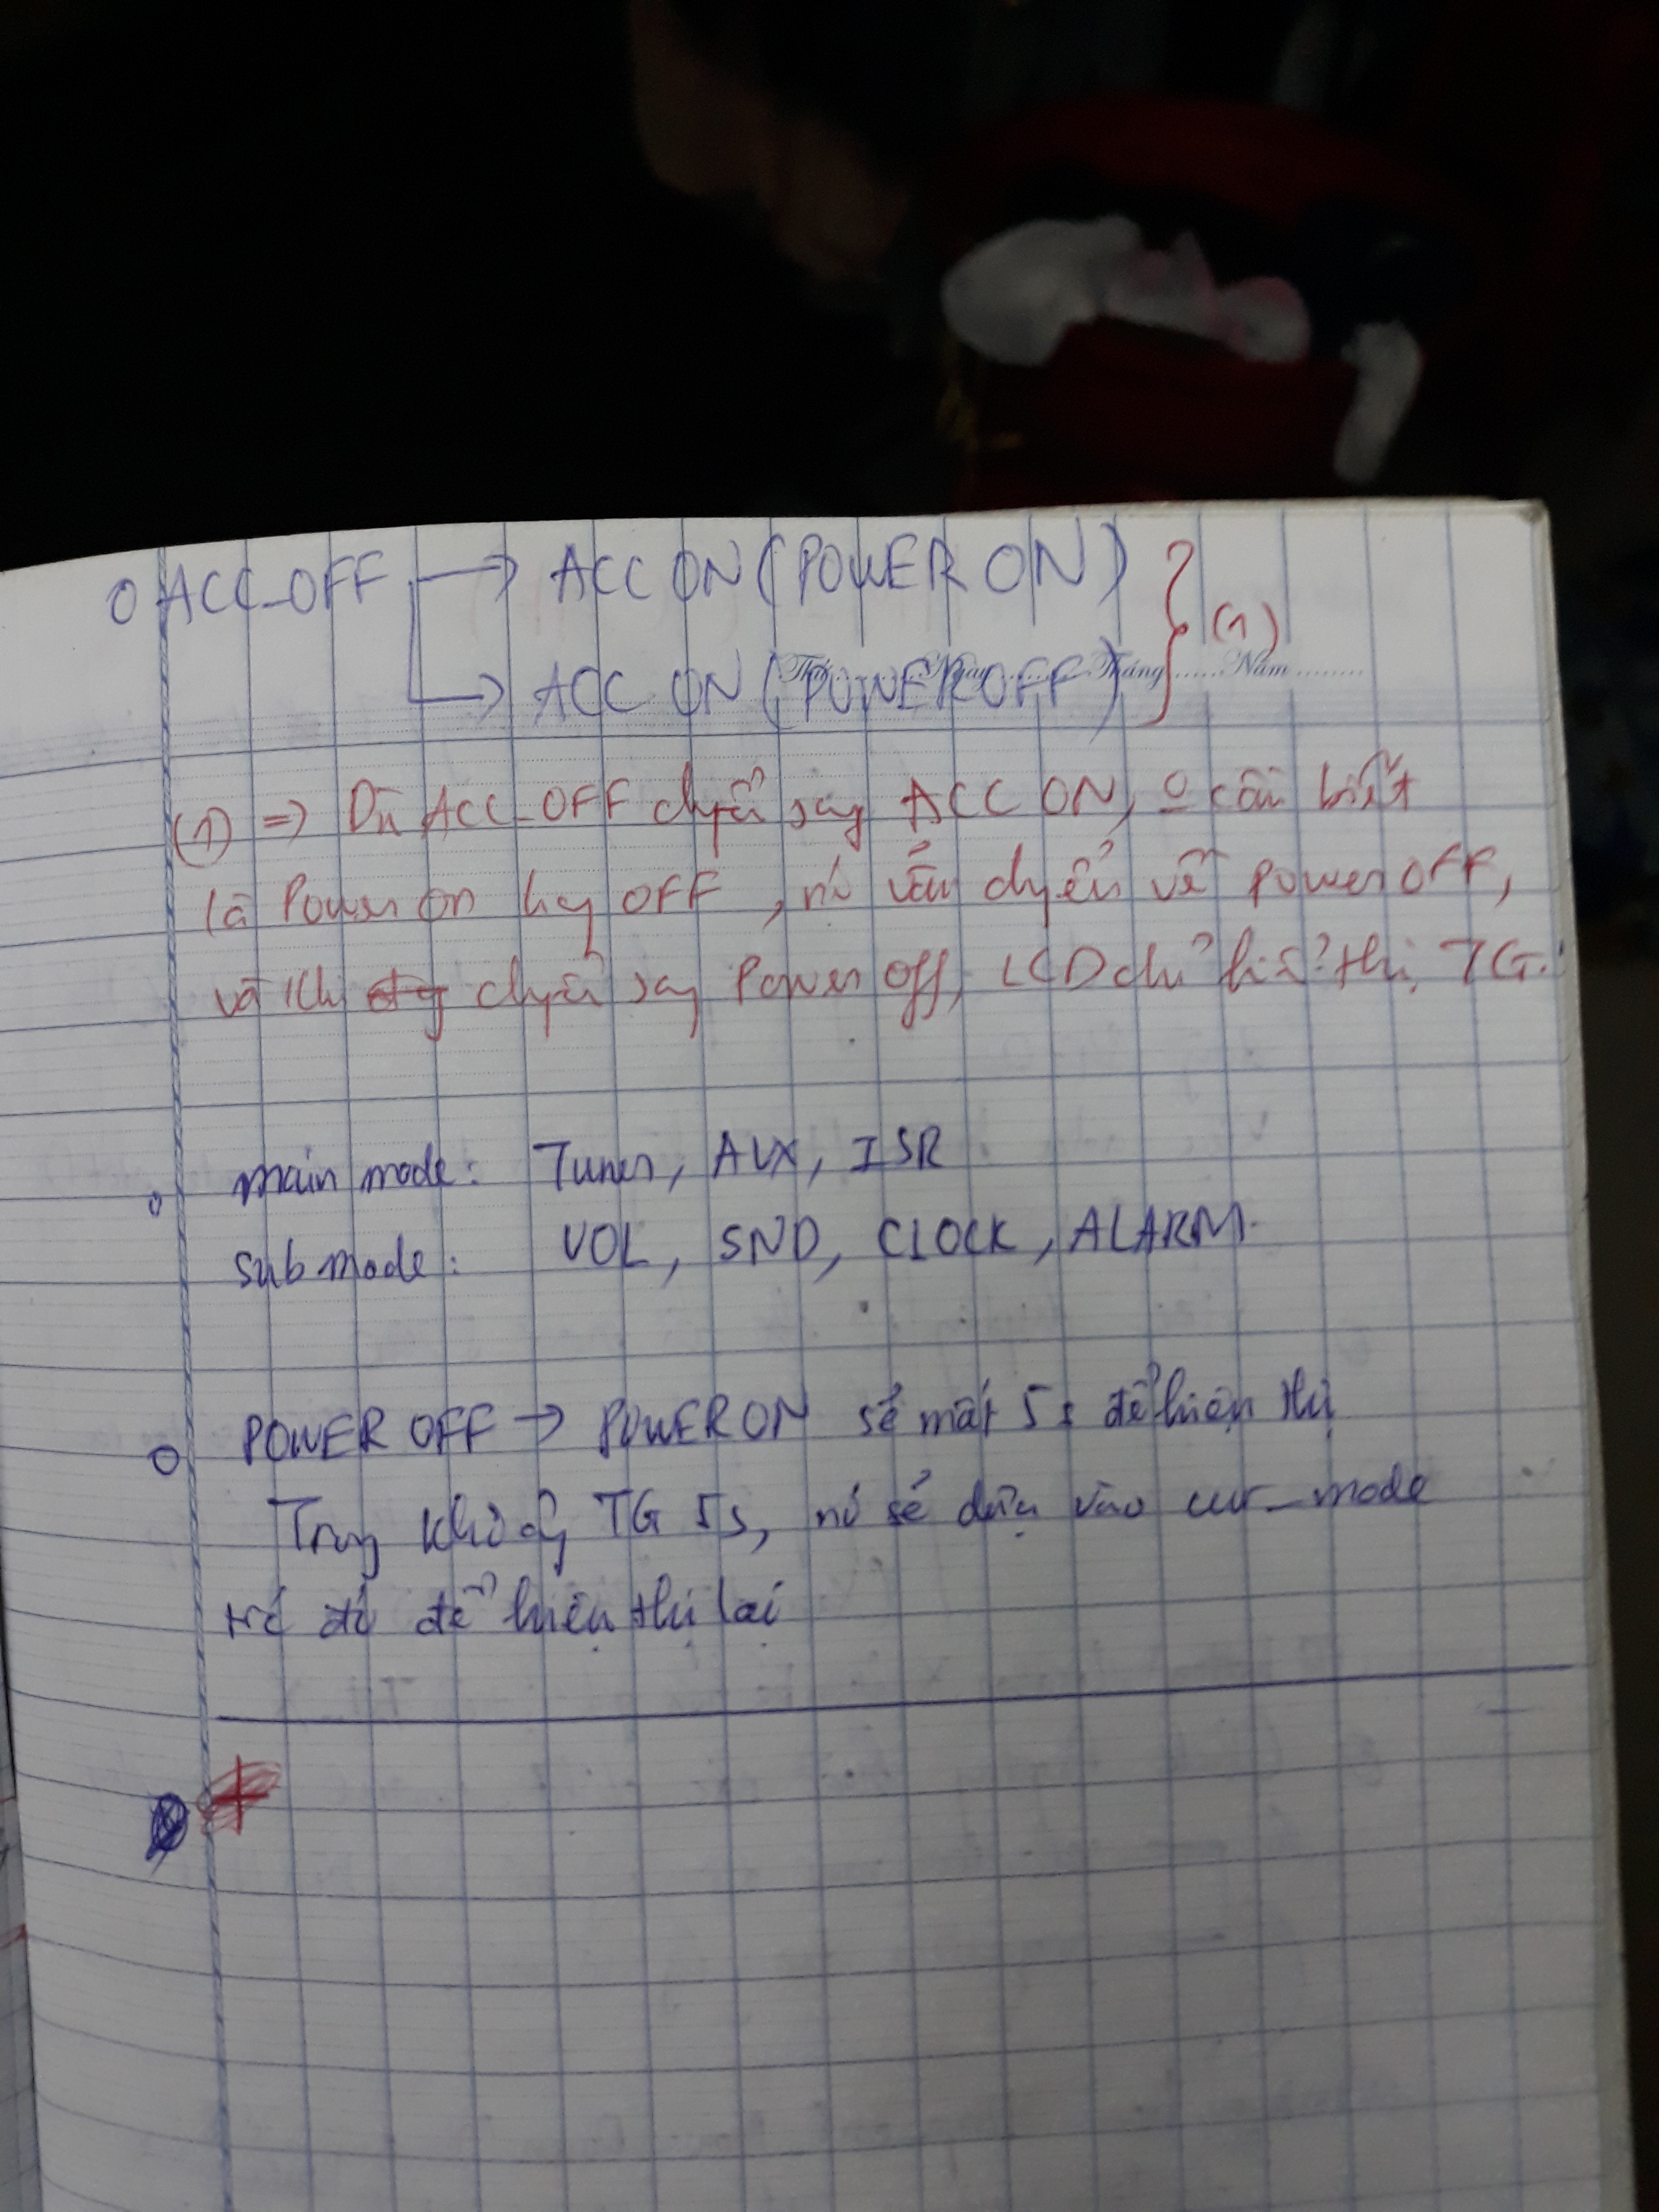 o ACC_OFF → ACC ON (POWER ON)
→ ACC ON (POWER OFF) } (1)
Tháng ...... Năm .........
(1) => Dù ACC_OFF chuyển sang ACC ON, o cần biết
là Power on hay OFF, nó vẫn chuyển về power OFF,
và khi chuyển sang Power Off, LCD chỉ hiển thị TG.
o main mode: Tuner, AUX, ISR
sub mode: VOL, SND, CLOCK, ALARM.
o POWER OFF → POWER ON sẽ mất 5s để hiện thị
Trong khoảng TG 5s, nó sẽ dựa vào cur_mode
trước đó để hiện thị lại